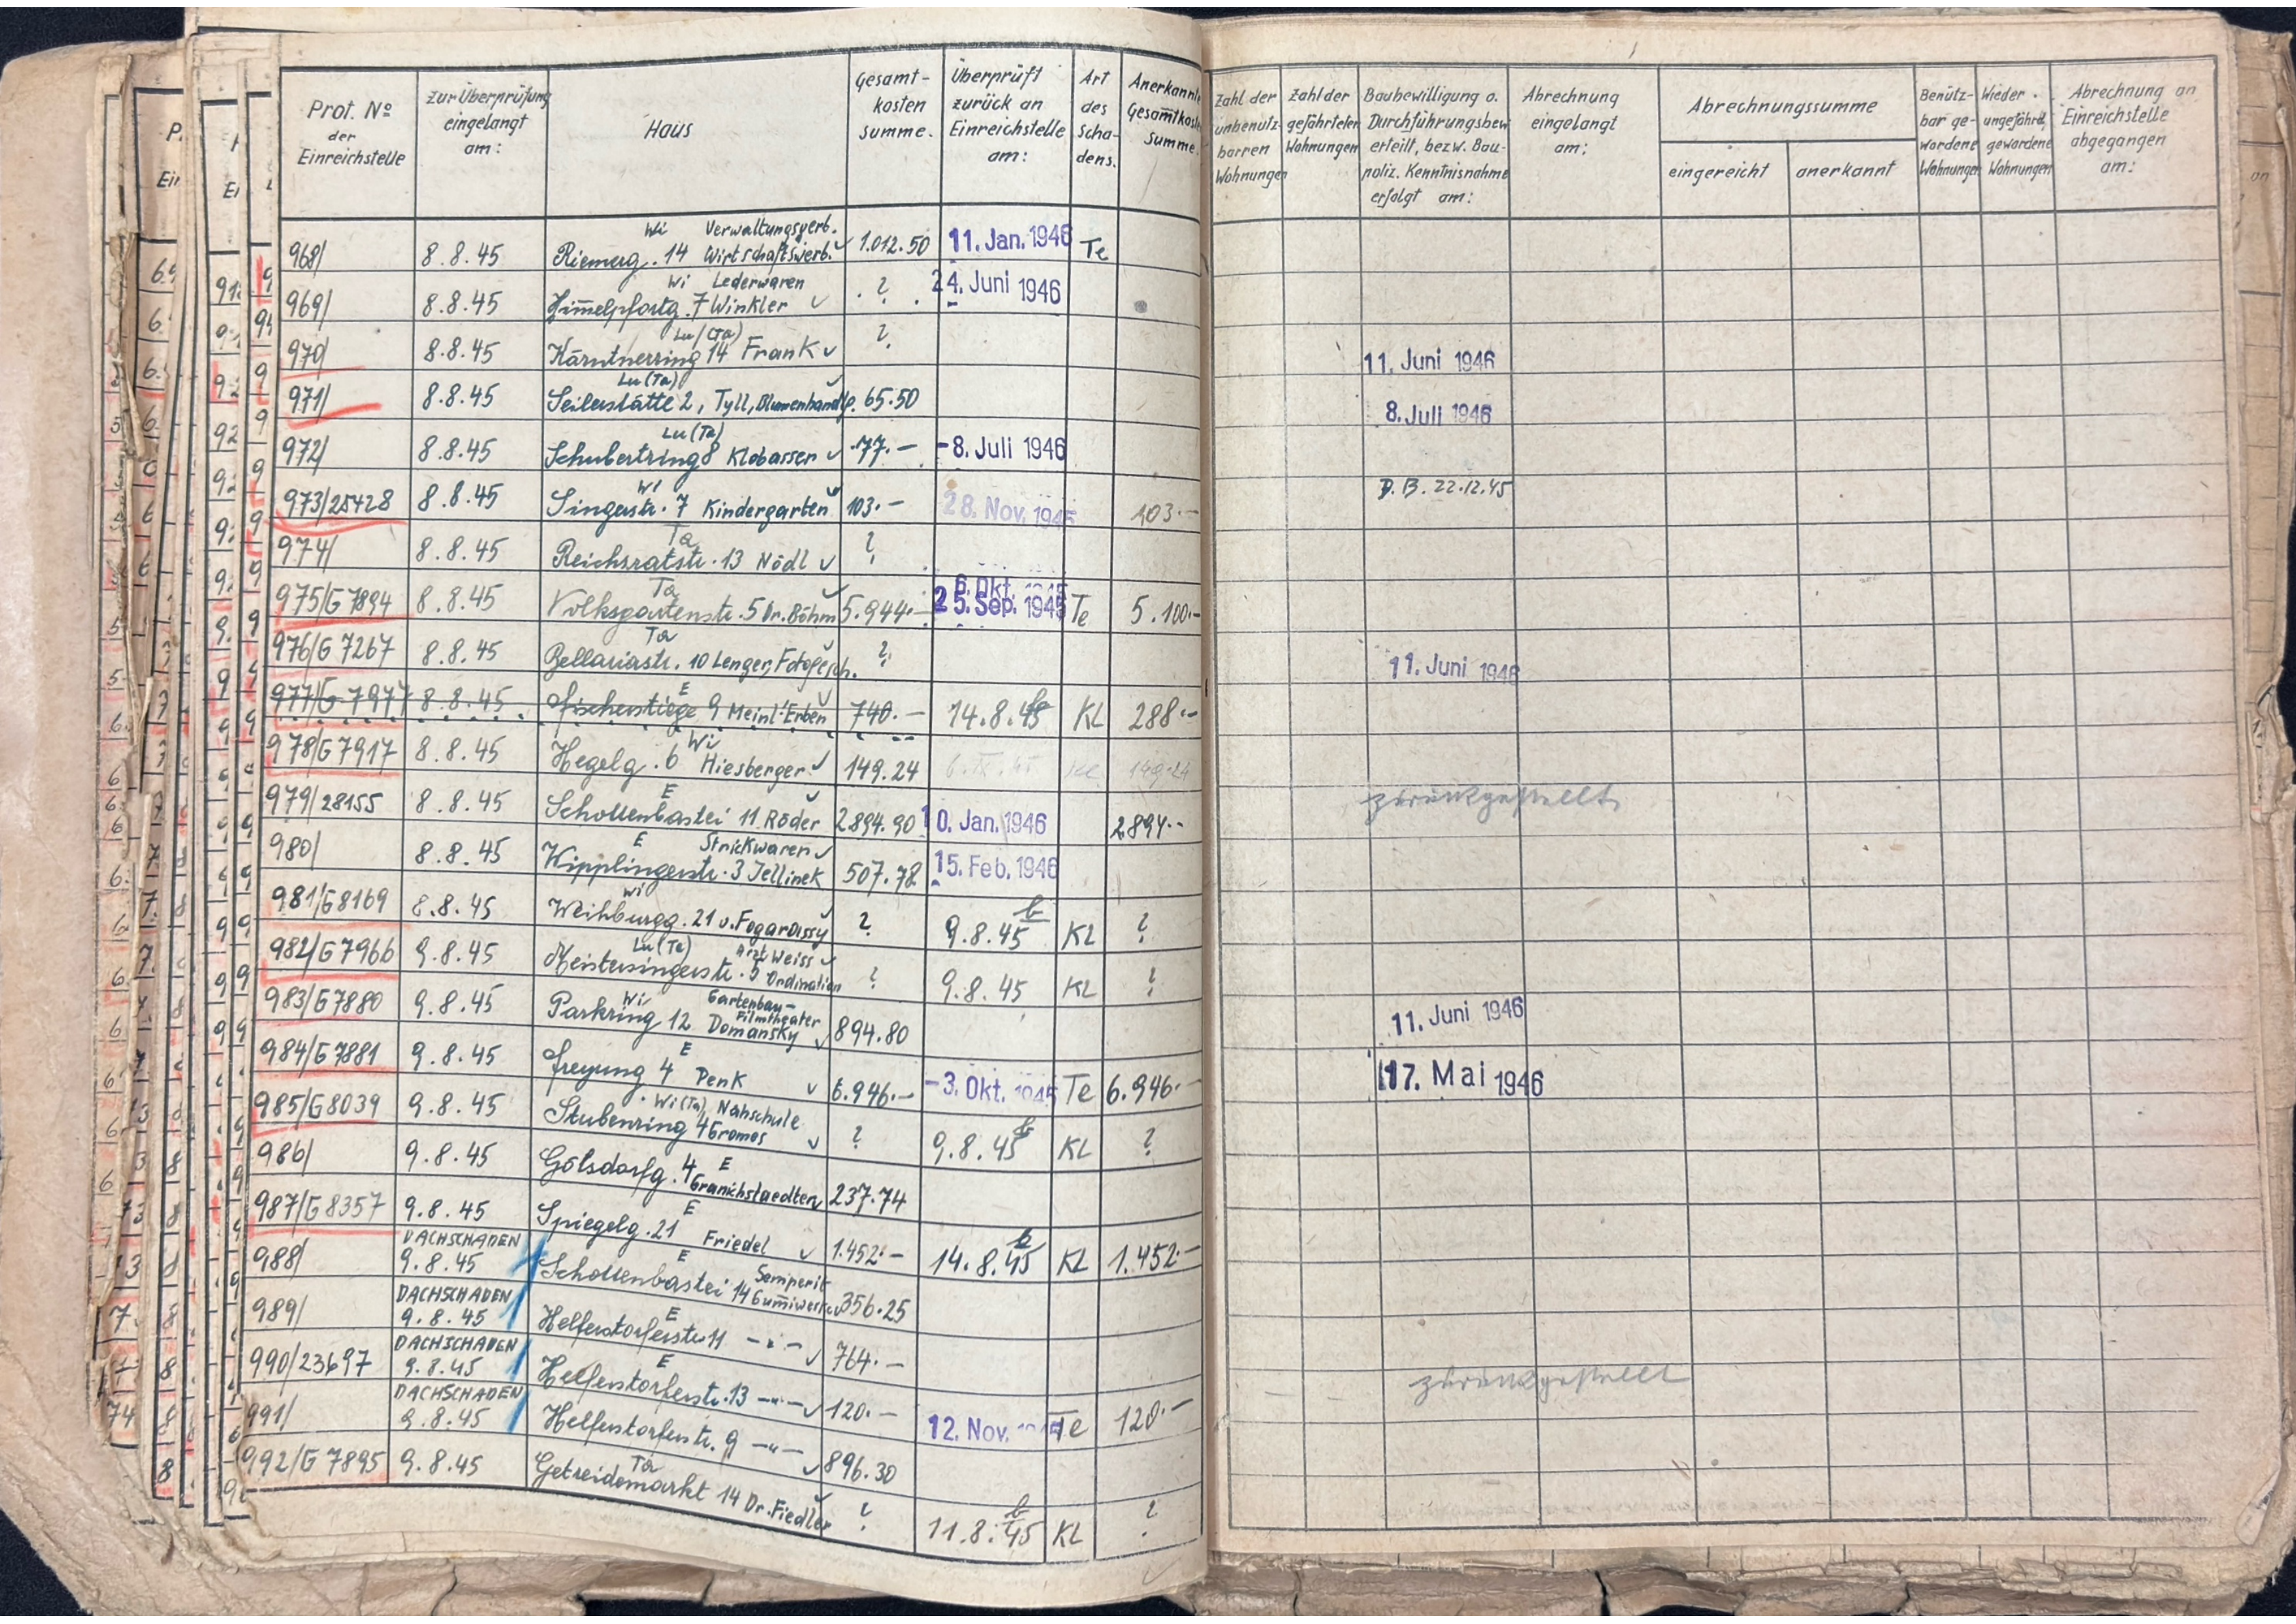 Prot. No der Einreichstelle
zur Überprüfung eingelangt am:
Haus
Gesamt-kosten summe.
Überprüft zurück an Einreichstelle am:
Art des Scha-dens.
Anerkannte Gesamtkosten Summe.
Zahl der unbenütz-barren Wohnungen
Zahl der gefährteten Wohnungen
Baubewilligung o. Durchführungsbew. erteilt, bezw. Bau-poliz. Kenntnisnahme erfolgt am:
Abrechnung eingelangt am:
Abrechnungssumme
eingereicht
anerkannt
Benütz-bar ge-wordene Wohnungen
Wieder ungefährd. gewordene Wohnungen
Abrechnung an Einreichstelle abgegangen am:
968/ 8.8.45 Wi Riemerg. 14 Verwaltungsverb. Wirtschaftswerb. 1.012.50 11. Jan. 1946 Te
969/ 8.8.45 Wi Himmelpfortg. 7 Lederwaren Winkler ? 24. Juni 1946
970/ 8.8.45 Lu (Ta) Kärntnerring 14 Frank ? 11. Juni 1946
971/ 8.8.45 Lu (Ta) Seilerstätte 2, Tyll, Blumenhandlg. 65.50 8. Juli 1946
972/ 8.8.45 Lu (Ta) Schubertring 8 Klobasser 77.– -8. Juli 1946
973/25428 8.8.45 Wi Singerstr. 7 Kindergarten 103.– 28. Nov. 1945 103.– D.B. 22.12.45
974/ 8.8.45 Ta Reichsratstr. 13 Nödl ?
975/G 7894 8.8.45 Ta Volksgartenstr. 5 Dr. Böhm 5.944.– 6. Okt. 1945 25. Sep. 1945 Te 5.100.–
976/G 7267 8.8.45 Ta Bellariastr. 10 Lenger, Fotogesch. ? 11. Juni 1946
977/G 7977 8.8.45 E Fischerstiege 9 Meinl'Erben 740.– 14.8.45 KL 288.–
978/G 7917 8.8.45 Wi Hegelg. 6 Hiesberger 149.24 149.24
979/28155 8.8.45 E Schottenbastei 11 Röder 2894.90 10. Jan. 1946 2894.– zurückgestellt
980/ 8.8.45 E Wipplingerstr. 3 Strickwaren Jellinek 507.78 15. Feb. 1946
981/G 8169 8.8.45 Wi Weihburgg. 21 v. Fogarassy ? 9.8.45 KL ?
982/G 7966 9.8.45 Lu (Ta) Meistersingerstr. 5 Arzt Weiss Ordination ? 9.8.45 KL ?
983/G 7880 9.8.45 Wi Parkring 12 Gartenbau-Filmtheater Domansky 894.80 11. Juni 1946
984/G 7881 9.8.45 E Freyung 4 Penk 6.946.– -3. Okt. 1945 Te 6.946.– 17. Mai 1946
985/G 8039 9.8.45 Wi (Ta) Stubenring 4 Nähschule Gromos ? 9.8.45 KL ?
986/ 9.8.45 E Gölsdorfg. 4 Granichstaedten 237.74
987/G 8357 9.8.45 E Spiegelg. 21 Friedel 1.452.– 14.8.45 KL 1.452.–
988/ DACHSCHADEN 9.8.45 E Schottenbastei 14 Semperit Gummiwerke 356.25
989/ DACHSCHADEN 9.8.45 E Helferstorferstr. 11 –"– 764.–
990/23697 DACHSCHADEN 9.8.45 E Helferstorferstr. 13 –"– 120.– 12. Nov. 1945 Te 120.– zurückgestellt
991/ DACHSCHADEN 9.8.45 Helferstorferstr. 9 –"– 896.30
992/G 7895 9.8.45 Ta Getreidemarkt 14 Dr. Fiedler ? 11.8.45 KL ?